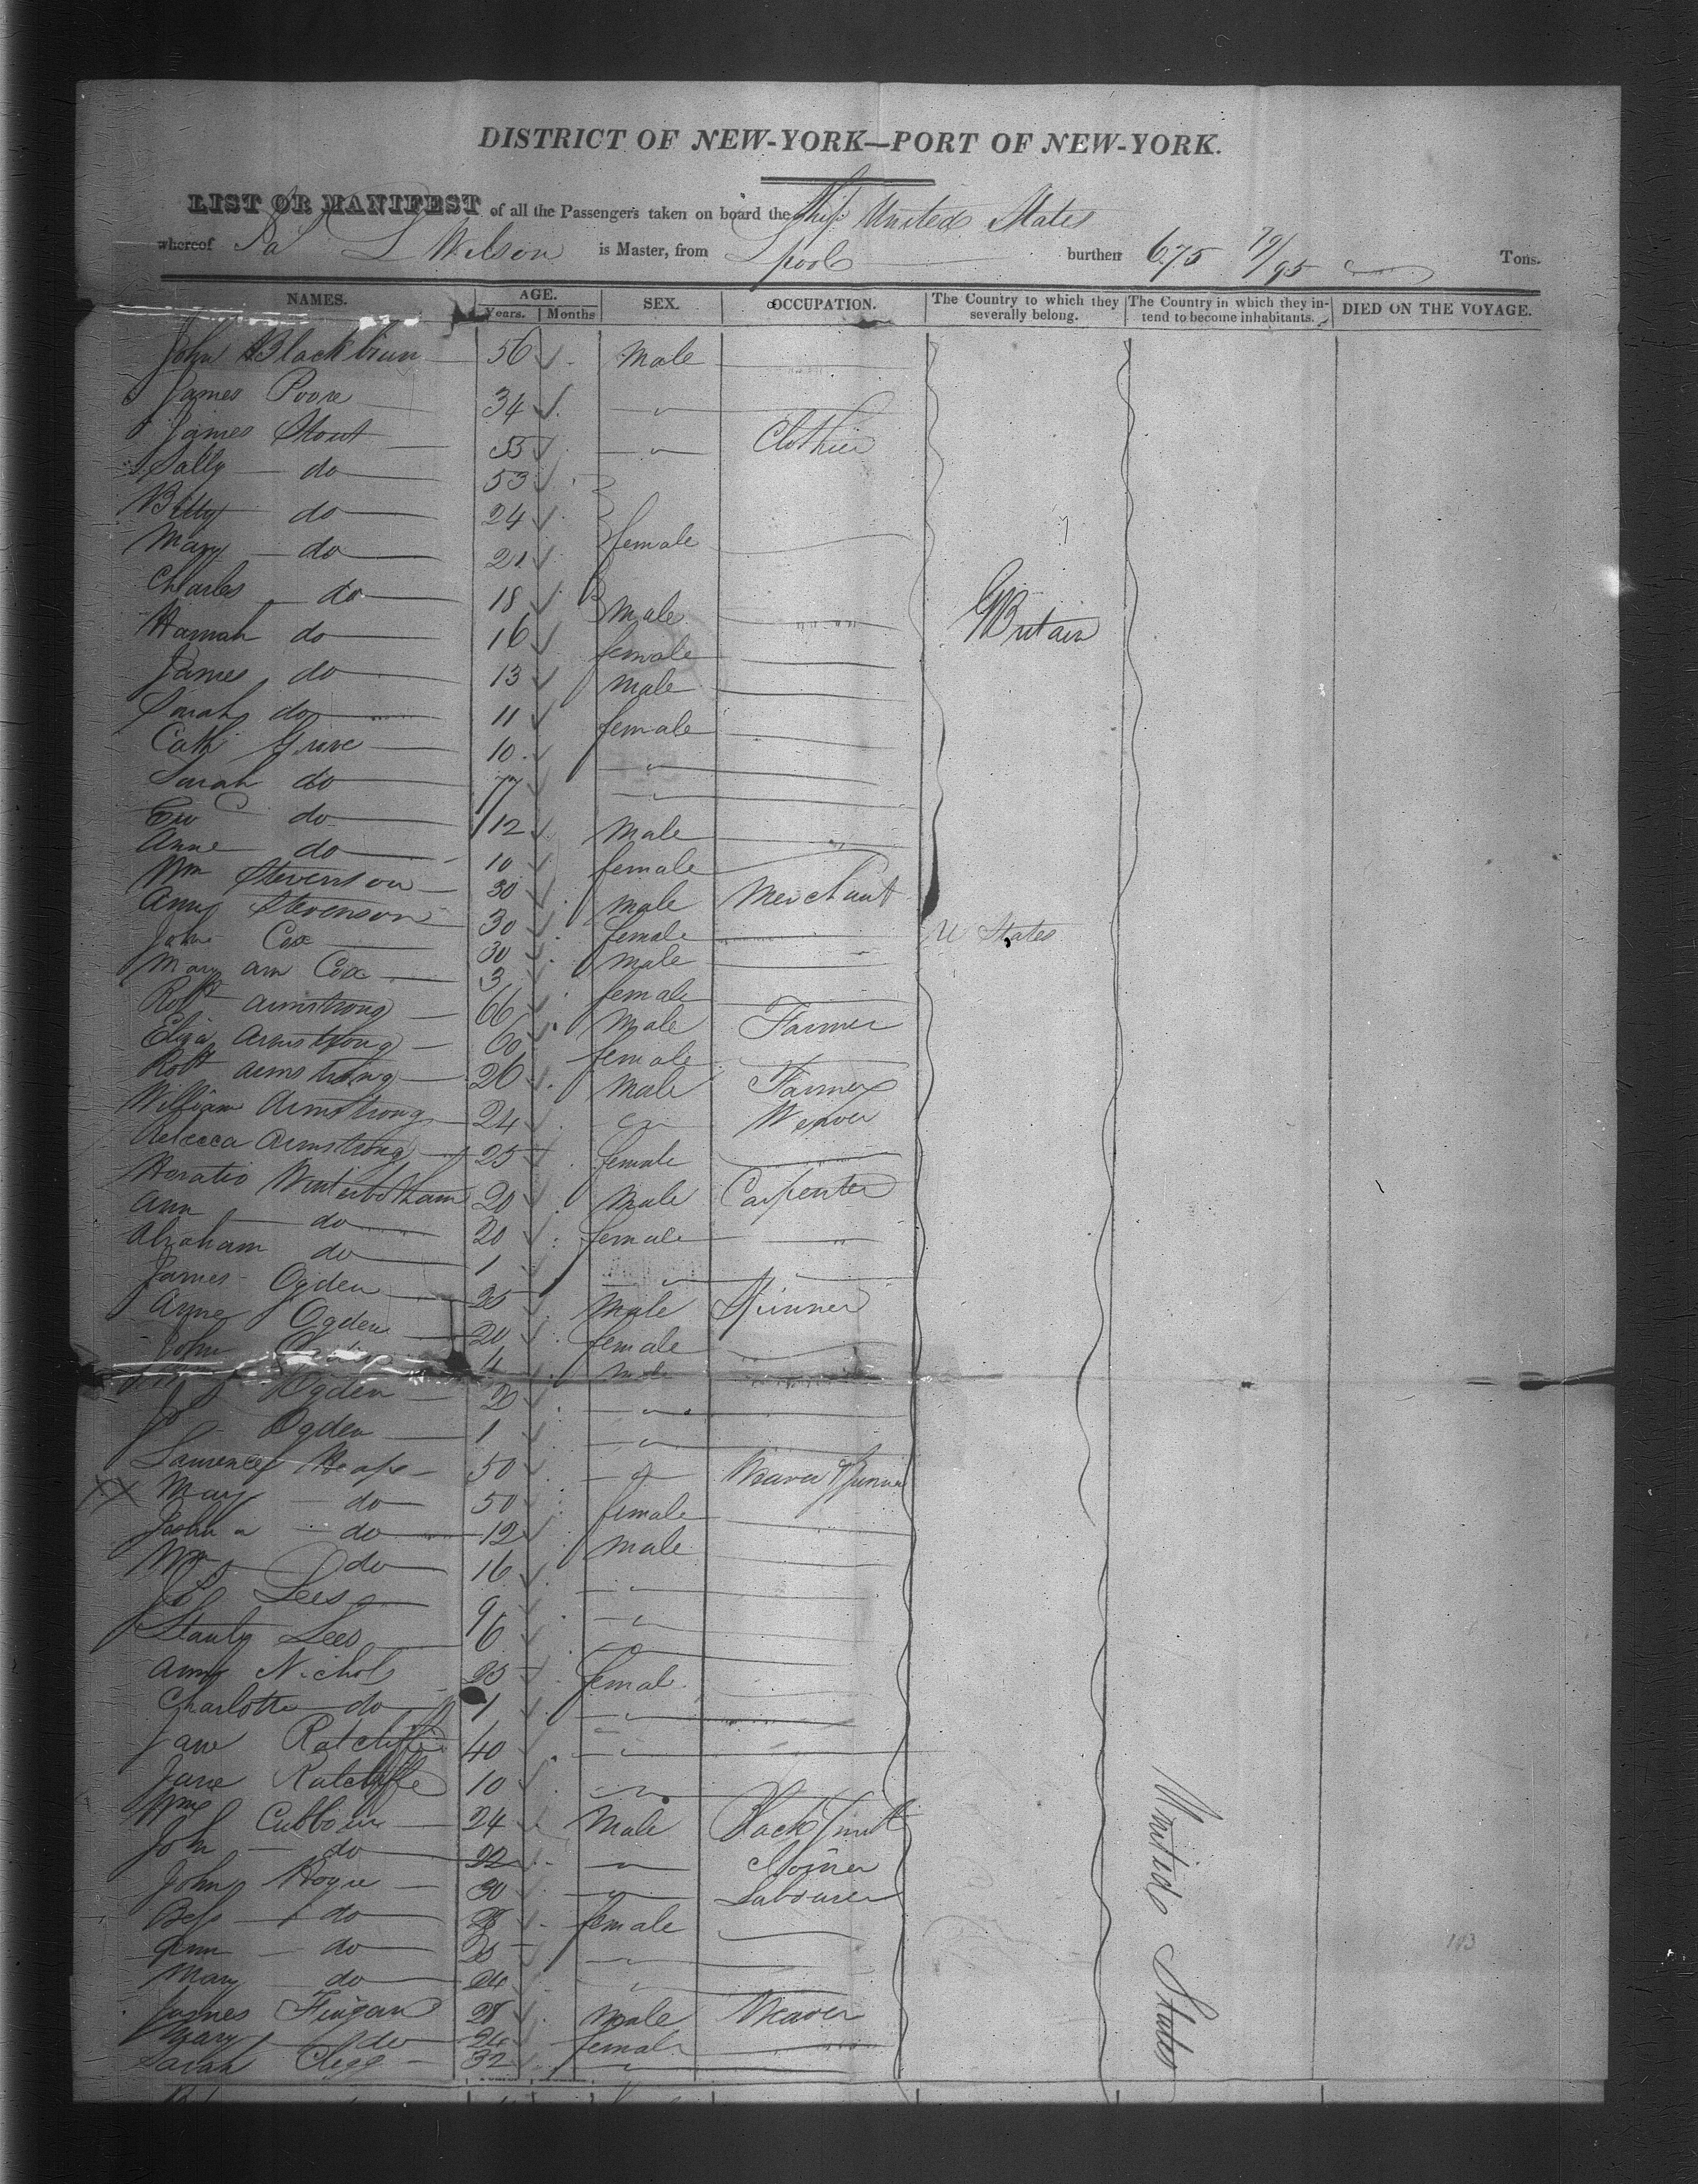 DISTRICT OF NEW-YORK—PORT OF NEW-YORK.
LIST OR MANIFEST of all the Passengers taken on board the Ship United States
whereof L Wilson is Master, from Lpool burthen 675 79/95 Tons.
NAMES. AGE. Years. Months SEX. OCCUPATION. The Country to which they severally belong. The Country in which they intend to become inhabitants. DIED ON THE VOYAGE.
John Blackburn 56 male
James Poore 34 "
James Stout 53 " Clothier
Sally do 53
Betty do 24
Mary do 21 female
Charles do 18 male
Hannah do 16 female GBritain
James do 13 male
Sarah do 11 female
Cath Grove 10 "
Sarah do 7 "
do 12 male
Anne do 10 female
Wm Stevenson 30 male Merchant
Anne Stevenson 30 female U States
John Cox 30 male
Mary ann Cox 3 female
Robt Armstrong 66 male Farmer
Eliza Armstrong 60 female
Robt Armstrong 26 male Farmer
William Armstrong 24 " Weaver
Rebecca Armstrong 25 female
Horatio Winterbotham 20 male Carpenter
Ann do 20 female
Abraham do 1 "
James Ogden 25 male Spinner
Anne Ogden 20 female
John 4 male
Ogden 2 "
Jos Ogden 1 "
Laurence Heap 50 " Weaver Spinner
XX Mary do 50 female
Joshua do 12 male
Wm do 16
Lees 9 "
Stanly Lees 6
Anne Nichol 25 female
Charlotte do 1 "
Jane Ratcliffe 40 "
Jane Ratcliffe 10 "
Wm Cubbon 24 male Blacksmith
John do 22 " Joiner
John Hogue 30 " Labourer
Bess do 28 female
Ann do 25 "
Mary do 24 "
James Finigan 28 male Weaver
Mary do 24 female
Sarah Clegg 32 "
United States
103